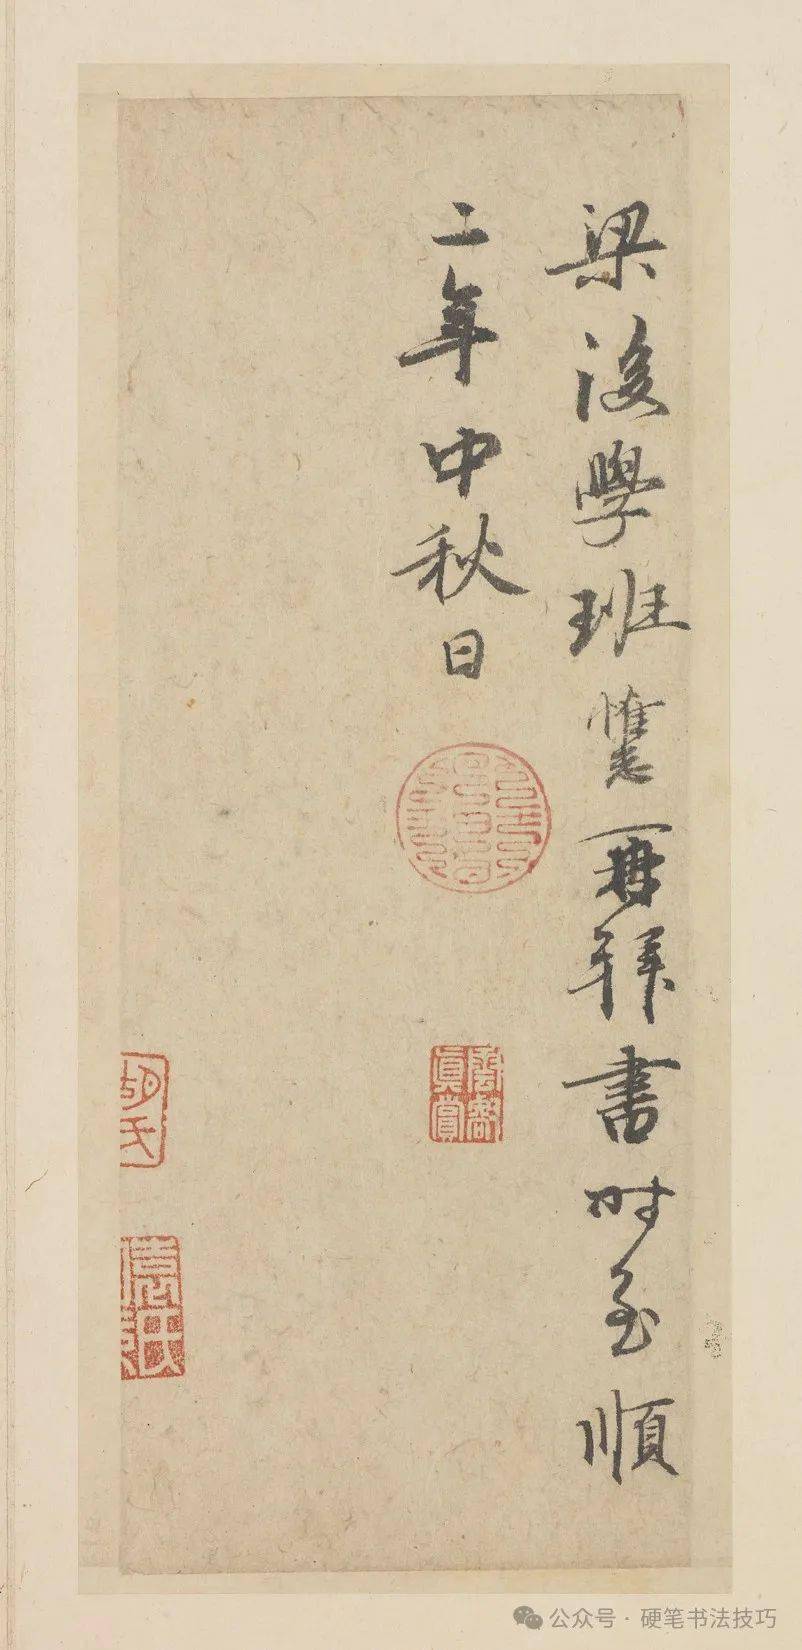 梁後學班惟志再拜書時至順
二年中秋日
眞賞
胡氏
公众号 · 硬笔书法技巧